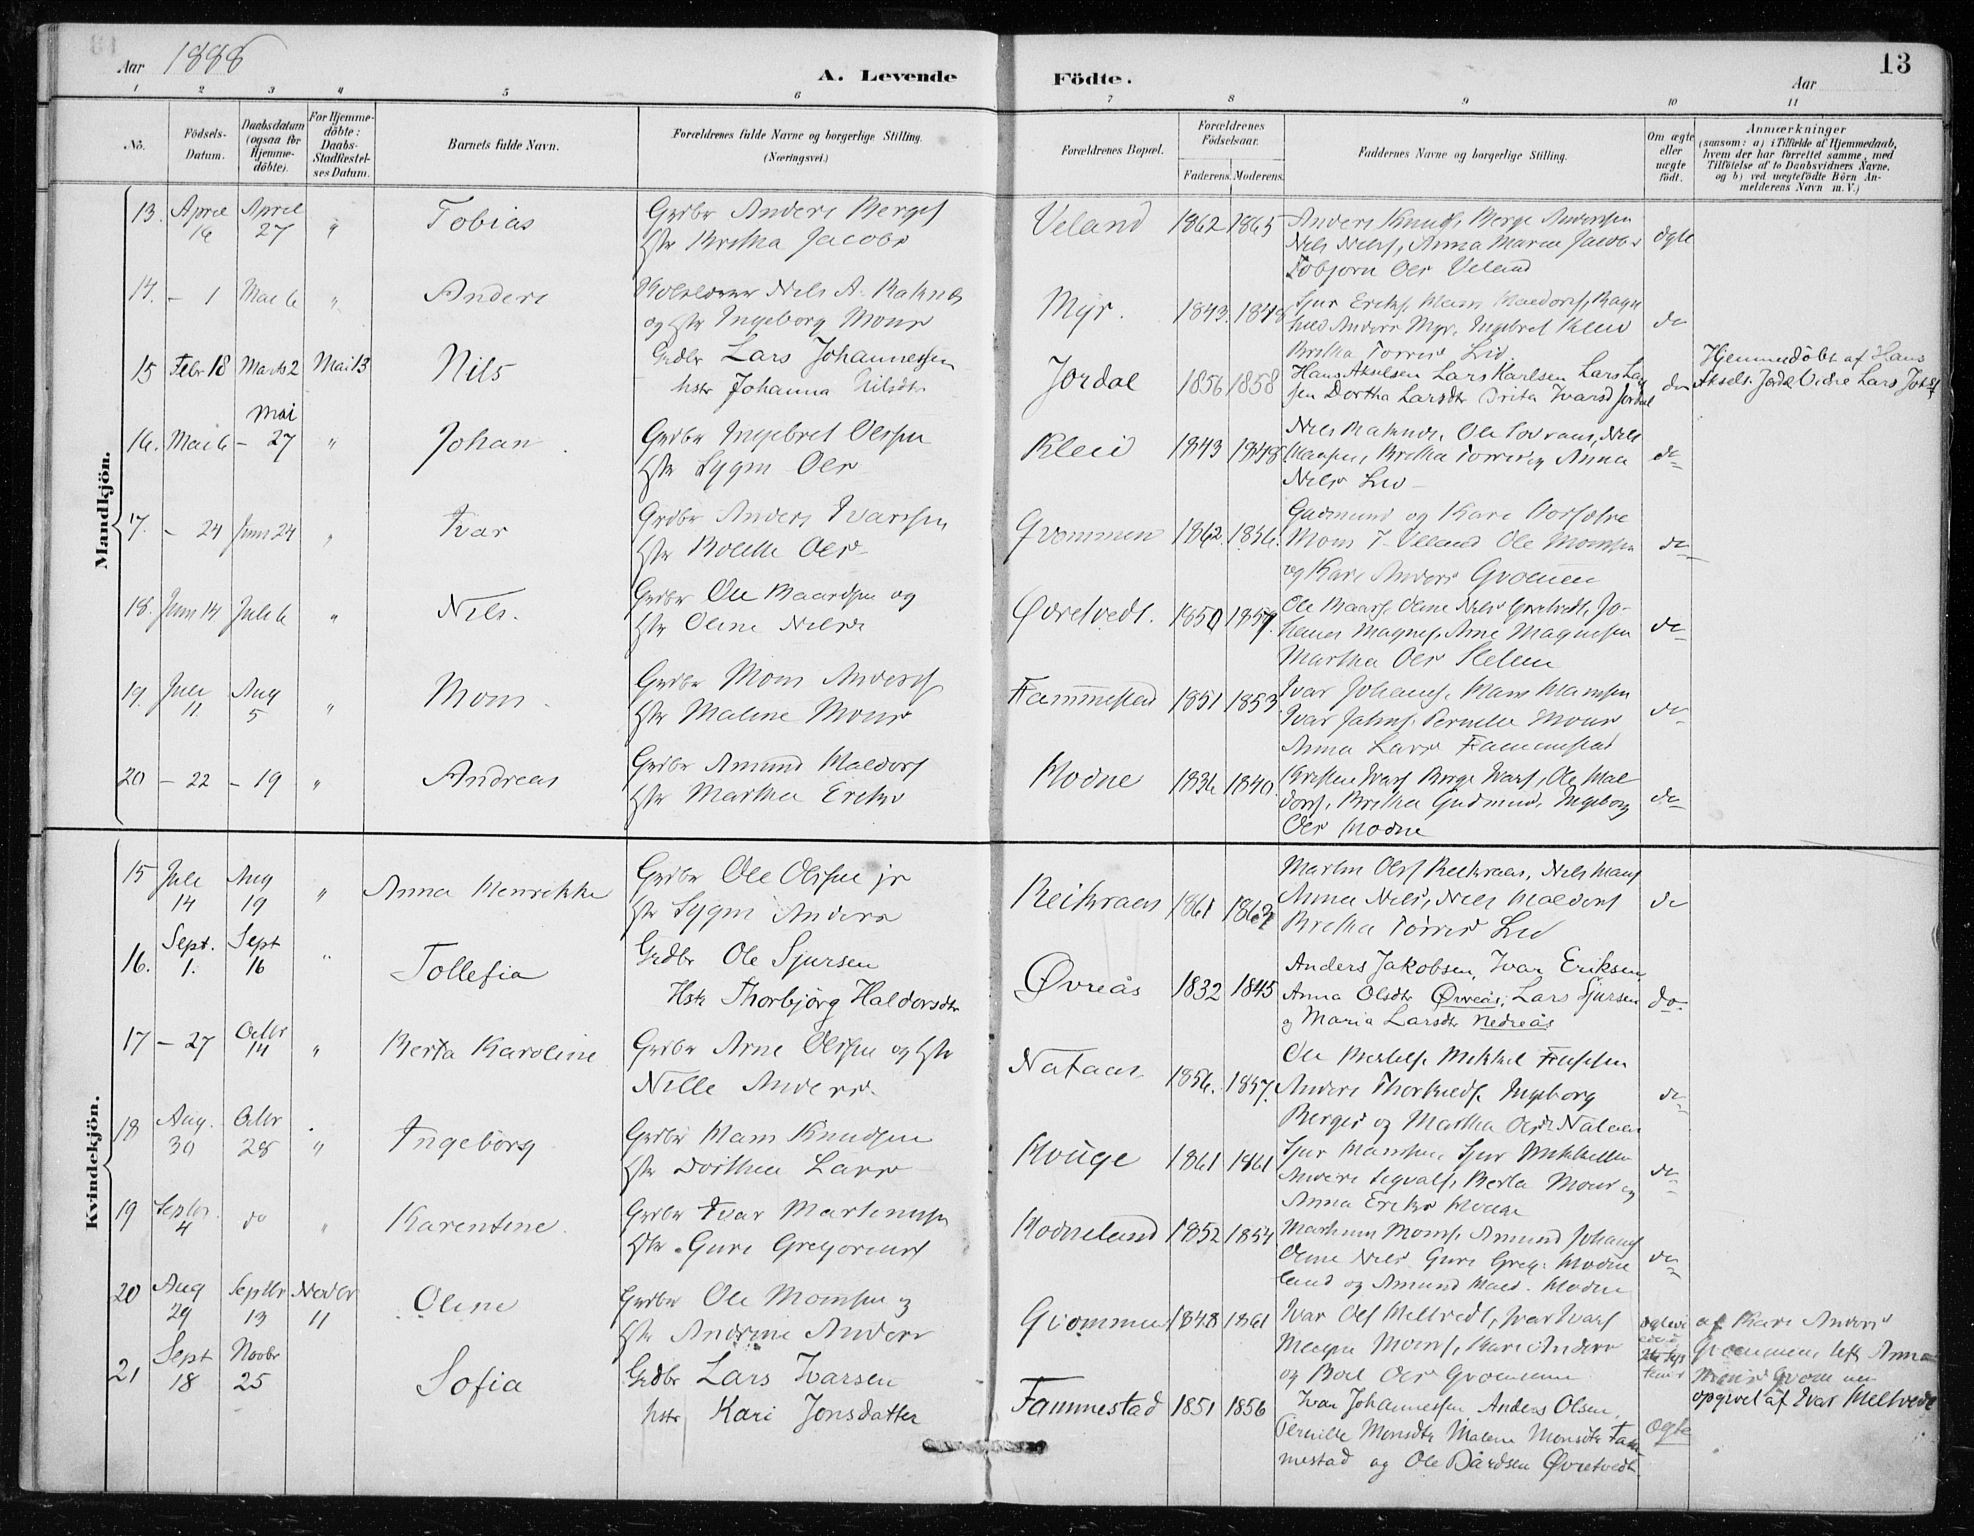 13
Aar 1888
A. Levende Födte.
Aar
1 2 3 4 5 6 7 8 9 10 11
No.
Födsels-Datum.
Daabsdatum (ogsaa for Hjemmedöbte).
For Hjemmedöbte: Daabs-Stadfestelses Datum.
Barnets fulde Navn.
Forældrenes fulde Navne og borgerlige Stilling. (Næringsvei.)
Forældrenes Bopæl.
Forældrenes Födselsaar.
Faderens. Moderens.
Faddernes Navne og borgerlige Stilling.
Om ægte eller uægte födt.
Anmærkninger
(saasom: a) i Tilfælde af Hjemmedaab, hvem der har forrettet samme, med Tilföielse af to Daabsvidners Navne, og b) ved uægtefödte Börn Anmelderens Navn m. V.)
Mandkjön.
13. April 16 April 27 " Tobias
Grdbr Anders Bergesf
Hstr Britha Jacobs
Veland 1862 1865
Anders Knuds, Berge Anderssen
Nels Nelsf, Anna Maria Jacobs
Tobjorn Ols Veland
ægte
14. - 1 Mai 6 " Anders
Nils A.
og Hstr Ingeborg Mons
Myr. 1843. 1848
Sjur Eriksf,
Anders Myr. Ingebret Kleiv
Britha Torris Lid
do
15 Febr 18 Marts 2 Mai 13 Nils
Grdbr Lars Johannessen
hstr Johanna Nilsdtr
Jordal 1856 1858
Hans Akselsen Lars Karlsen Lars Lar
sen Dortha Larsdtr Brita Ivarsd Jordal
do
Hjemmedöbt af Hans
Aksels. Jordal Vidne Lars Johsf
16. Mai 6 Mai - 27 " Johan
Grdbr Ingebret Olssen
Hstr Sygni Ols
Kleiv 1843 1848
Britha Torris og Anna
Nils Lid
do
17. - 24 Juni 24 " Ivar
Grdbr Anders Ivarssen
Hstr Bolette Ols
Gvommen 1862. 1856.
Gudmund og Kari
Mons T. Veland Ole Monssen
og Kari Anders Gvommen
do
18. Juni 14 Juli 6 " Nils.
Grdbr Ole Baardsen og
Hstr Oline Nils
Øvretvedt. 1850 1859.
Ole Baarsf, Oline Nils Øvretvedt, Jo-
hanes Magnesf, Arne Magnessen
Martha Ols
do
19. Juli 11. Aug 5 " Mons.
Grdbr Mons Andersf
Hstr Maline Mons
Fammestad 1851 1853
Ivar Johansf, Hans Hanssen
Ivar Johnsf, Pernille Mons
Anna Lars Fammestad
do
20 - 22 - 19 " Andreas
Grdbr Amund Haldorsf
Hstr Martha Eriks
Hodne 1836 1840.
Kristen Ivarsf Berge Ivarsf, Ole Hal
dorsf, Britha Gudmund, Ingeborg
Ols Hodne
do
Kvindekjön.
15 Juli 14 Aug 19 " Anna Henrikke
Grdbr Ole Olssen jr
Hstr Sygni Anders
Reikraas 1861
Martin Olsf Reikraas, Nils Hansf
Anna Nils, Nels Haldorsf
Britha Torris Lid
do
16. Sept. 1. Sept 16 " Tollefia
Grdbr Ole Sjursen
Hstr Thorbjörg Haldorsdtr
Øvreås 1832 1845
Anders Jakobsen, Ivar Eriksen,
Anna Olsdtr Øvreås, Lars Sjursen
og Maria Larsdtr Nedreås
do.
17 - 27 Octbr 14 " Berta Karoline
Grdbr Arne Olssen og Hstr
Nille Anders.
Nataas 1856. 1857.
Anders Thorkildsf Ingeborg
Berges og Martha Ols Nataas
do
18 Aug. 30 Octbr 28 " Ingeborg
Grdbr Hans Knudsen
Hstr Dorthea Lars
Houge 1861 1861
Sjur Hanssen, Sjur Mikkelsen
Anders Sygvalsf, Berta Mons og
Anna Eriks Houge
do
19 Septbr. 4 do " Karentine.
Grdbr Ivar Martinussen
Hstr Guri Gregoriusf
Hodneland 1852 1854
Martinus Monsf, Amund Johansf
Oline Nils Guri Greg: Hodne
land og Amund Hald. Hodne
do
20 Aug 29 Septbr 13 Novbr 11 Oline
Grdbr Ole Monssen og
Hstr Andrine Anders
Gvommen 1848 1861
Ivar Olsf Meltvedt, Ivar Ivarsf
Magne Monsf, Kari Anders
og Boel Ols Gvommen
af Kari Anders
Gvommen, Anna
opgivet af Ivar Meltvedt
21 Sept 18 Novbr 25 Sofia
Grdbr Lars Ivarsen
hstr Kari Jonsdatter
Fammestad 1851 1856
Ivar Johannessen Anders Olsen
Pernille Monsdtr Malene Monsdtr Fam
mestad og Ole Bårdsen Øvretvedt.
ægte
"